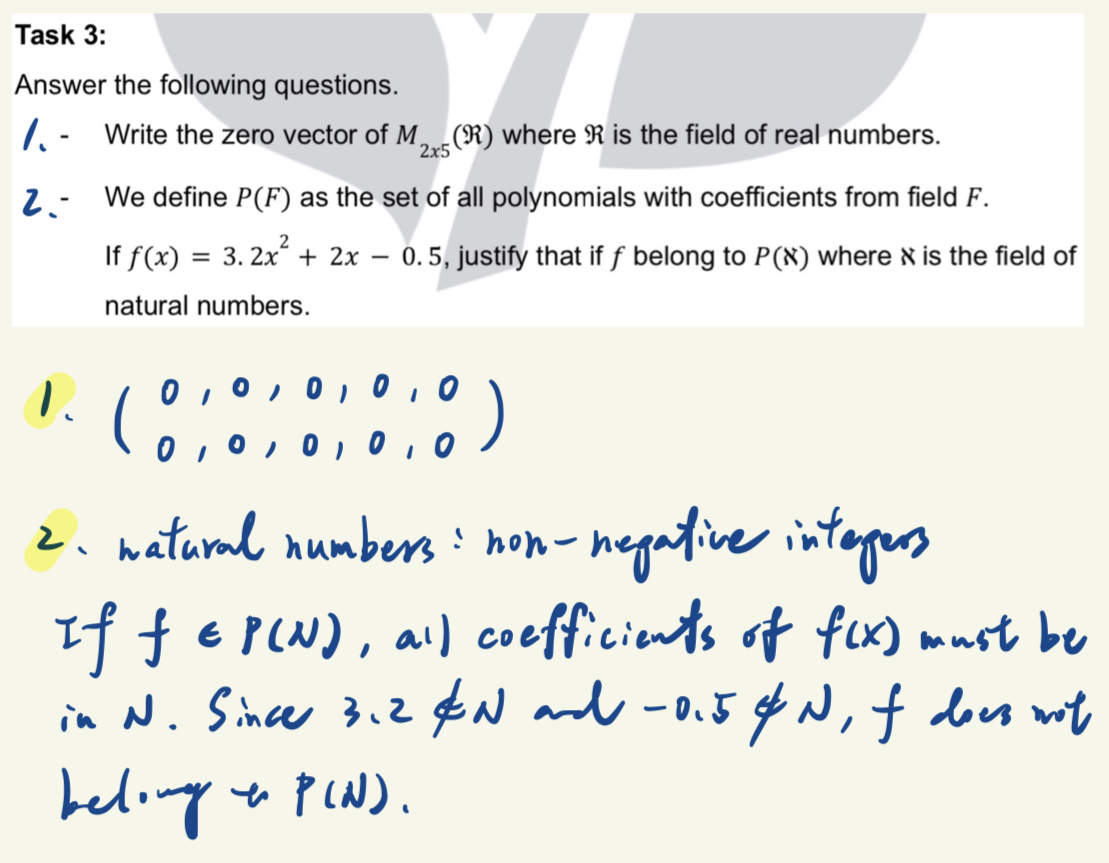 Task 3:
Answer the following questions.
1. - Write the zero vector of M₂ₓ₅(ℜ) where ℜ is the field of real numbers.
2. - We define P(F) as the set of all polynomials with coefficients from field F.
If f(x) = 3. 2x² + 2x − 0. 5, justify that if f belong to P(ℵ) where ℵ is the field of
natural numbers.
1. ( 0 , 0 , 0 , 0 , 0
0 , 0 , 0 , 0 , 0 )
2. natural numbers : non-negative integers
If f ∈ P(N), all coefficients of f(x) must be
in N. Since 3.2 ∉ N and -0.5 ∉ N, f does not
belong to P(N).